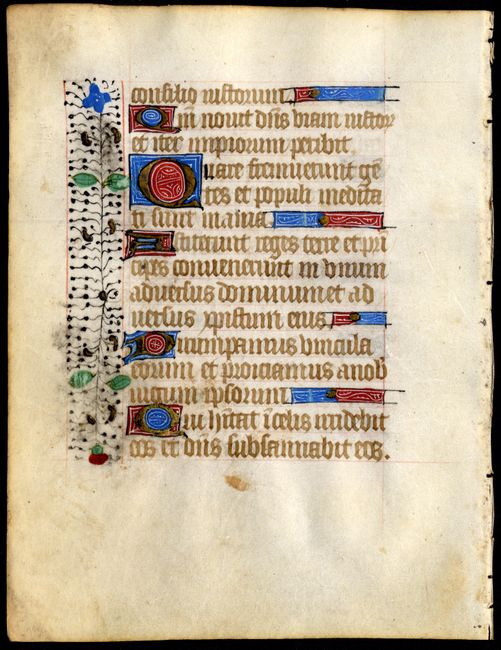 consilio iustorum
Qm nouit dns viam iustor
et iter impiorum peribit
Quare fremuerunt gē
tes et populi medita
ti sunt inania
Astiterunt reges terre et pri
cipes conuenerunt in vnum
aduersus dominum et ad
uersus xpistum eius
Dirumpamus vincula
eorum et proiciamus a nob
iugum ipsorum
Qui hītat ī celis irridebit
eos et dns subsannabit eos.